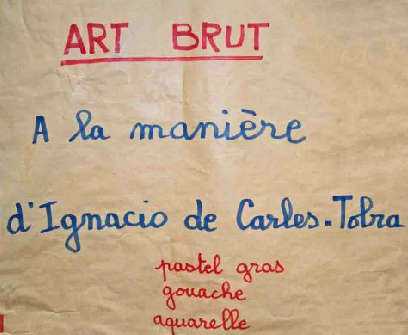 ART BRUT
A la manière
d'Ignacio de Carles-Tolra
pastel gras
gouache
aquarelle